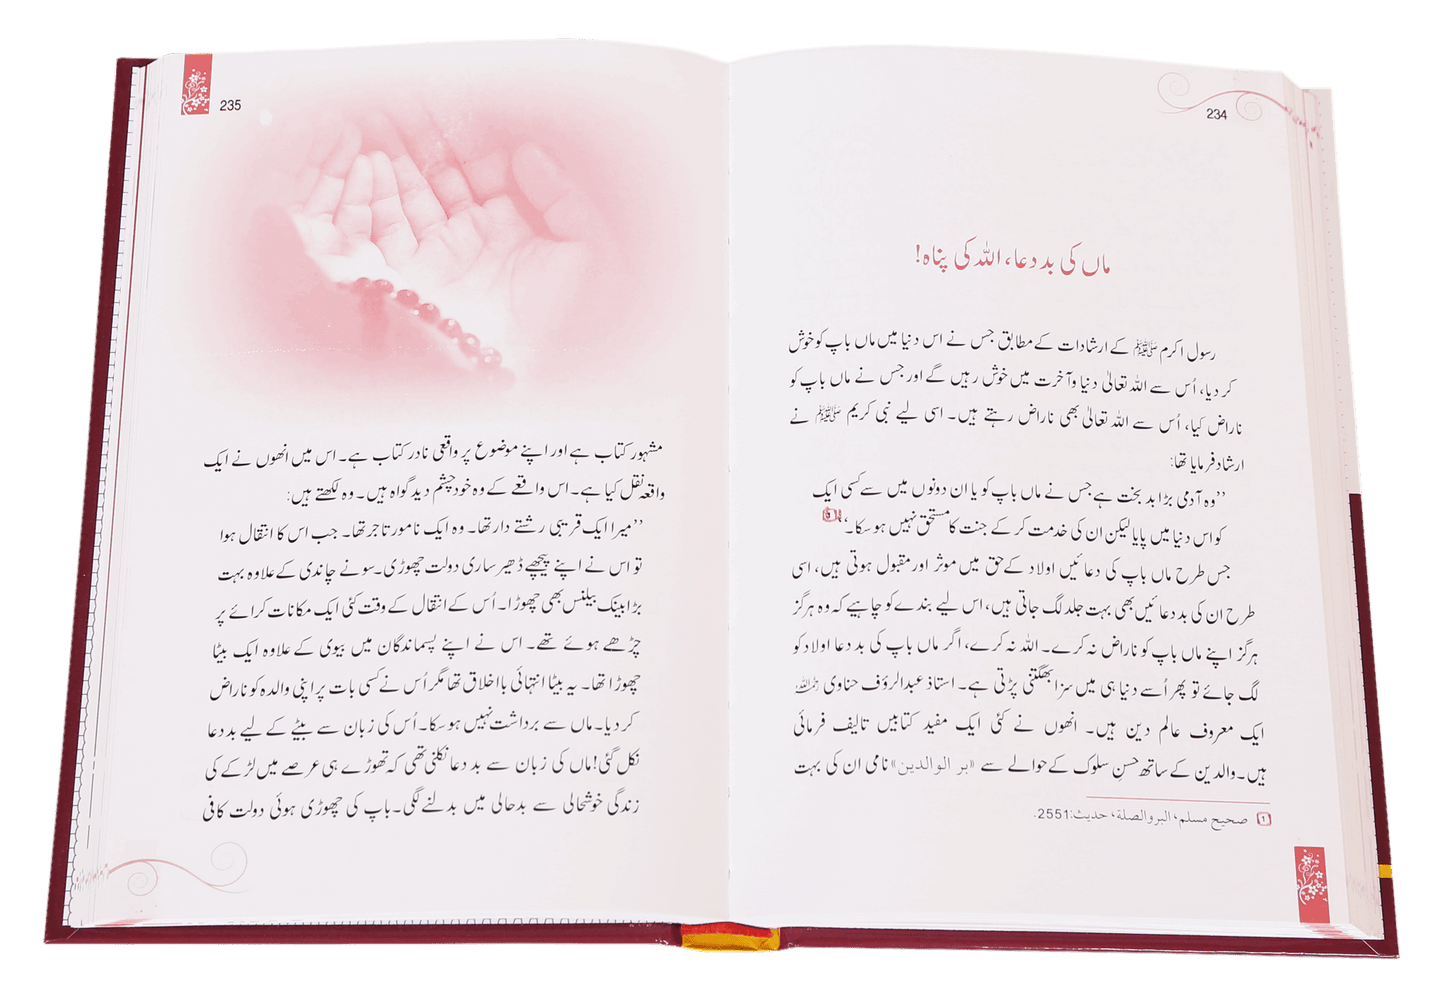 234
ماں کی بد دعا، اللہ کی پناہ!
رسول اکرم ﷺ کے ارشادات کے مطابق جس نے اس دنیا میں ماں باپ کو خوش
کر دیا، اُس سے اللہ تعالیٰ دنیا و آخرت میں خوش رہیں گے اور جس نے ماں باپ کو
ناراض کیا، اُس سے اللہ تعالیٰ بھی ناراض رہتے ہیں۔ اسی لیے نبی کریم ﷺ نے
ارشاد فرمایا تھا:
’’وہ آدمی بڑا بد بخت ہے جس نے ماں باپ کو یا ان دونوں میں سے کسی ایک
کو اس دنیا میں پایا لیکن ان کی خدمت کر کے جنت کا مستحق نہیں ہو سکا۔‘‘
جس طرح ماں باپ کی دعائیں اولاد کے حق میں موثر اور مقبول ہوتی ہیں، اسی
طرح ان کی بد دعائیں بھی بہت جلد لگ جاتی ہیں، اس لیے بندے کو چاہیے کہ وہ ہرگز
ہرگز اپنے ماں باپ کو ناراض نہ کرے۔ اللہ نہ کرے، اگر ماں باپ کی بد دعا اولاد کو
لگ جائے تو پھر اُسے دنیا ہی میں سزا بھگتنی پڑتی ہے۔ استاذ عبدالرؤف حناوی رحمہ اللہ
ایک معروف عالم دین ہیں۔ انھوں نے کئی ایک مفید کتابیں تالیف فرمائی
ہیں۔ والدین کے ساتھ حسنِ سلوک کے حوالے سے «بر الوالدین» نامی ان کی بہت
1 صحیح مسلم، البر والصلة، حدیث: 2551.
235
مشہور کتاب ہے اور اپنے موضوع پر واقعی نادر کتاب ہے۔ اس میں انھوں نے ایک
واقعہ نقل کیا ہے۔ اس واقعے کے وہ خود چشم دید گواہ ہیں۔ وہ لکھتے ہیں:
’’میرا ایک قریبی رشتے دار تھا۔ وہ ایک نامور تاجر تھا۔ جب اس کا انتقال ہوا
تو اس نے اپنے پیچھے ڈھیر ساری دولت چھوڑی۔ سونے چاندی کے علاوہ بہت
بڑا بینک بیلنس بھی چھوڑا۔ اُس کے انتقال کے وقت کئی ایک مکانات کرائے پر
چڑھے ہوئے تھے۔ اس نے اپنے پسماندگان میں بیوی کے علاوہ ایک بیٹا
چھوڑا تھا۔ یہ بیٹا انتہائی با اخلاق تھا مگر اُس نے کسی بات پر اپنی والدہ کو ناراض
کر دیا۔ ماں سے برداشت نہیں ہو سکا۔ اُس کی زبان سے بیٹے کے لیے بد دعا
نکل گئی! ماں کی زبان سے بد دعا نکلنی تھی کہ تھوڑے ہی عرصے میں لڑکے کی
زندگی خوشحالی سے بدحالی میں بدلنے لگی۔ باپ کی چھوڑی ہوئی دولت کافی